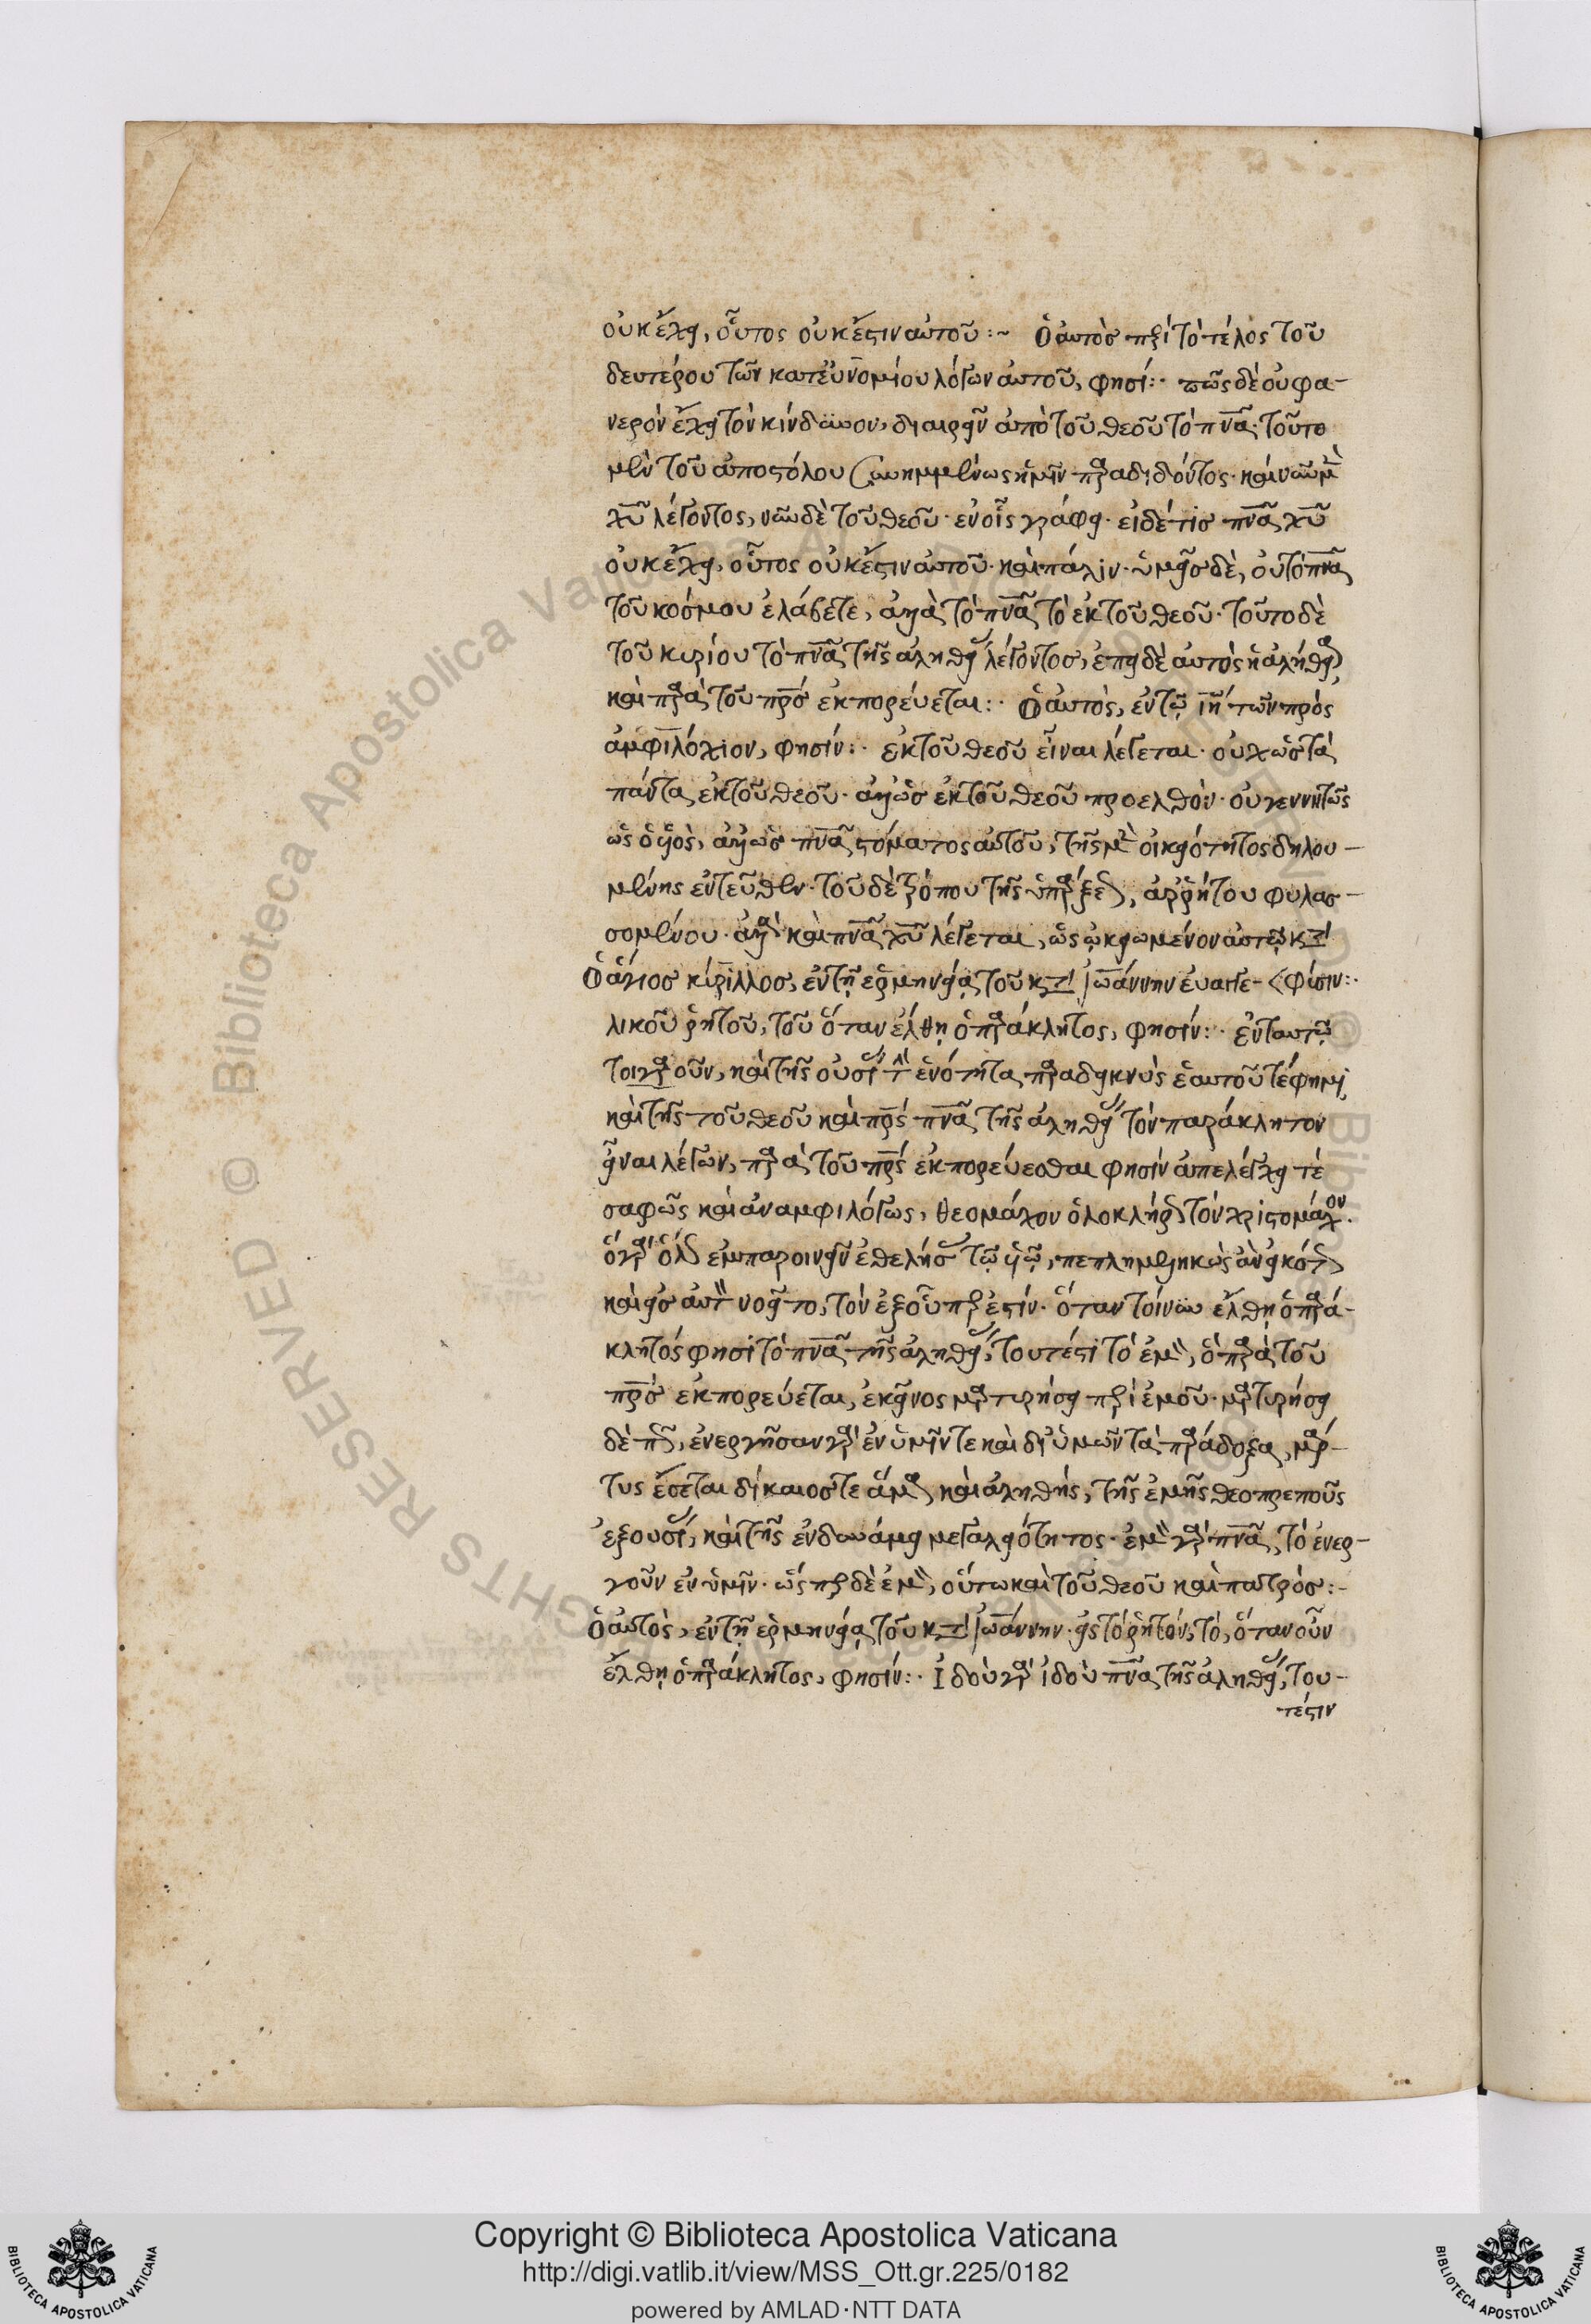 οὐκ ἔχει, οὗτος οὐκ ἔστιν αὐτοῦ :~ Ὁ αὐτὸσ περὶ τὸ τέλος τοῦ
δευτέρου τῶν κατ' εὐνομίου λόγων αὐτοῦ, φησί :· πῶς δὲ οὐ φα-
νερὸν ἔχει τὸν κίνδυνον, διαιρεῖν ἀπὸ τοῦ θεοῦ τὸ πνᾶ· τοῦτο
μὲν τοῦ ἀποστόλου συνημμένως ἡμῖν παραδιδόντος· καὶ νῦν μὲν
χῦ λέγοντος, νῦν δὲ τοῦ θεοῦ· ἐν οἷς γράφει· εἰ δέ τισ πνᾶ χῦ
οὐκ ἔχει, οὗτος οὐκ ἔστιν αὐτοῦ· καὶ πάλιν· ὑμεῖσ δὲ, οὐ τὸ πνᾶ
τοῦ κόσμου ἐλάβετε, ἀλλὰ τὸ πνᾶ τὸ ἐκ τοῦ θεοῦ· τοῦτο δὲ
τοῦ κυρίου τὸ πνᾶ τῆς ἀληθείας λέγοντοσ, ἐπειδὲ αὐτὸς ἡ ἀλήθεια,
καὶ παρὰ τοῦ πρσ ἐκπορεύεται :· Ὁ αὐτὸς, ἐν τῷ ιη τῶν πρὸς
ἀμφιλόχιον, φησίν :· ἐκ τοῦ θεοῦ εἶναι λέγεται· οὐχ ὡσ τὰ
πάντα ἐκ τοῦ θεοῦ· ἀλλ' ὡσ ἐκ τοῦ θεοῦ προελθὸν· οὐ γεννητῶς
ὡς ὁ υἱὸς, ἀλλ' ὡσ πνᾶ στόματος αὐτοῦ, τῆς μὲν οἰκειότητος δηλου-
μένης ἐντεῦθεν· τοῦ δὲ τρόπου τῆς ὑπάρξεως, ἀρρήτου φυλασ-
σομένου· ἀλλὰ καὶ πνᾶ χῦ λέγεται, ὡς ᾠκειωμένον αὐτῷ κατὰ
Ὁ ἅγιοσ κύριλλοσ, ἐν τῇ ἑρμηνείᾳ τοῦ κατὰ ἰωάννην εὐαγγε- < φύσιν :·
λικοῦ ῥητοῦ, τοῦ ὅταν ἔλθῃ ὁ παράκλητος, φησίν :· ἐν ταυτῷ
τοιγαροῦν, καὶ τῆς οὐσίας τὴν ἑνότητα παραδεικνὺς ἑαυτοῦ τέ φημι,
καὶ τῆς τοῦ θεοῦ καὶ πρς πνᾶ τῆς ἀληθείας τὸν παράκλητον
εἶναι λέγων, παρὰ τοῦ πρς ἐκπορεύεσθαι φησίν ἀπελέγχει τὲ
σαφῶς καὶ ἀναμφιλόγως, θεομάχον ὁλοκλήρως τὸν χριστομάχον.
ὁ γὰρ ὅλως ἐμπαροινεῖν ἐθελήσας τῷ υἱῷ, πεπλημμεληκὼς ἂν εἰκότως
καὶ εἰσ αὐτὸν νοεῖτο, τὸν ἐξ οὗπερ ἐστίν· ὅταν τοίνυν ἔλθῃ ὁ παρά-
κλητός φησι τὸ πνᾶ τῆς ἀληθείας, τουτέστι τὸ ἐμὸν, ὃ παρὰ τοῦ
πρσ ἐκπορεύεται, ἐκεῖνος μαρτυρήσει περὶ ἐμοῦ· μαρτυρήσει
δὲ πῶς, ἐνεργῆσαν γὰρ ἐν ὑμῖν τε καὶ δι' ὑμῶν τὰ παράδοξα, μάρ-
τυς ἔσεται δίκαιοσ τε ἅμα καὶ ἀληθής, τῆς ἐμῆς θεοπρεποῦς
ἐξουσίας, καὶ τῆς ἐν δυνάμει μεγαλειότητος· ἐμὸν γὰρ πνᾶ, τὸ ἐνερ-
γοῦν ἐν ὑμῖν· ὥσπερ δὲ ἐμὸν, οὕτω καὶ τοῦ θεοῦ καὶ πατρόσ :-
Ὁ αὐτὸς, ἐν τῇ ἑρμηνείᾳ τοῦ κατὰ ἰωάννην· εἰς τὸ ῥητόν, τὸ, ὅταν οὖν
ἔλθῃ ὁ παράκλητος, φησίν :· Ἰδοὺ γὰρ ἰδοὺ πνᾶ τῆς ἀληθείας, του-
τέστιν
Copyright © Biblioteca Apostolica Vaticana
http://digi.vatlib.it/view/MSS_Ott.gr.225/0182
powered by AMLAD·NTT DATA